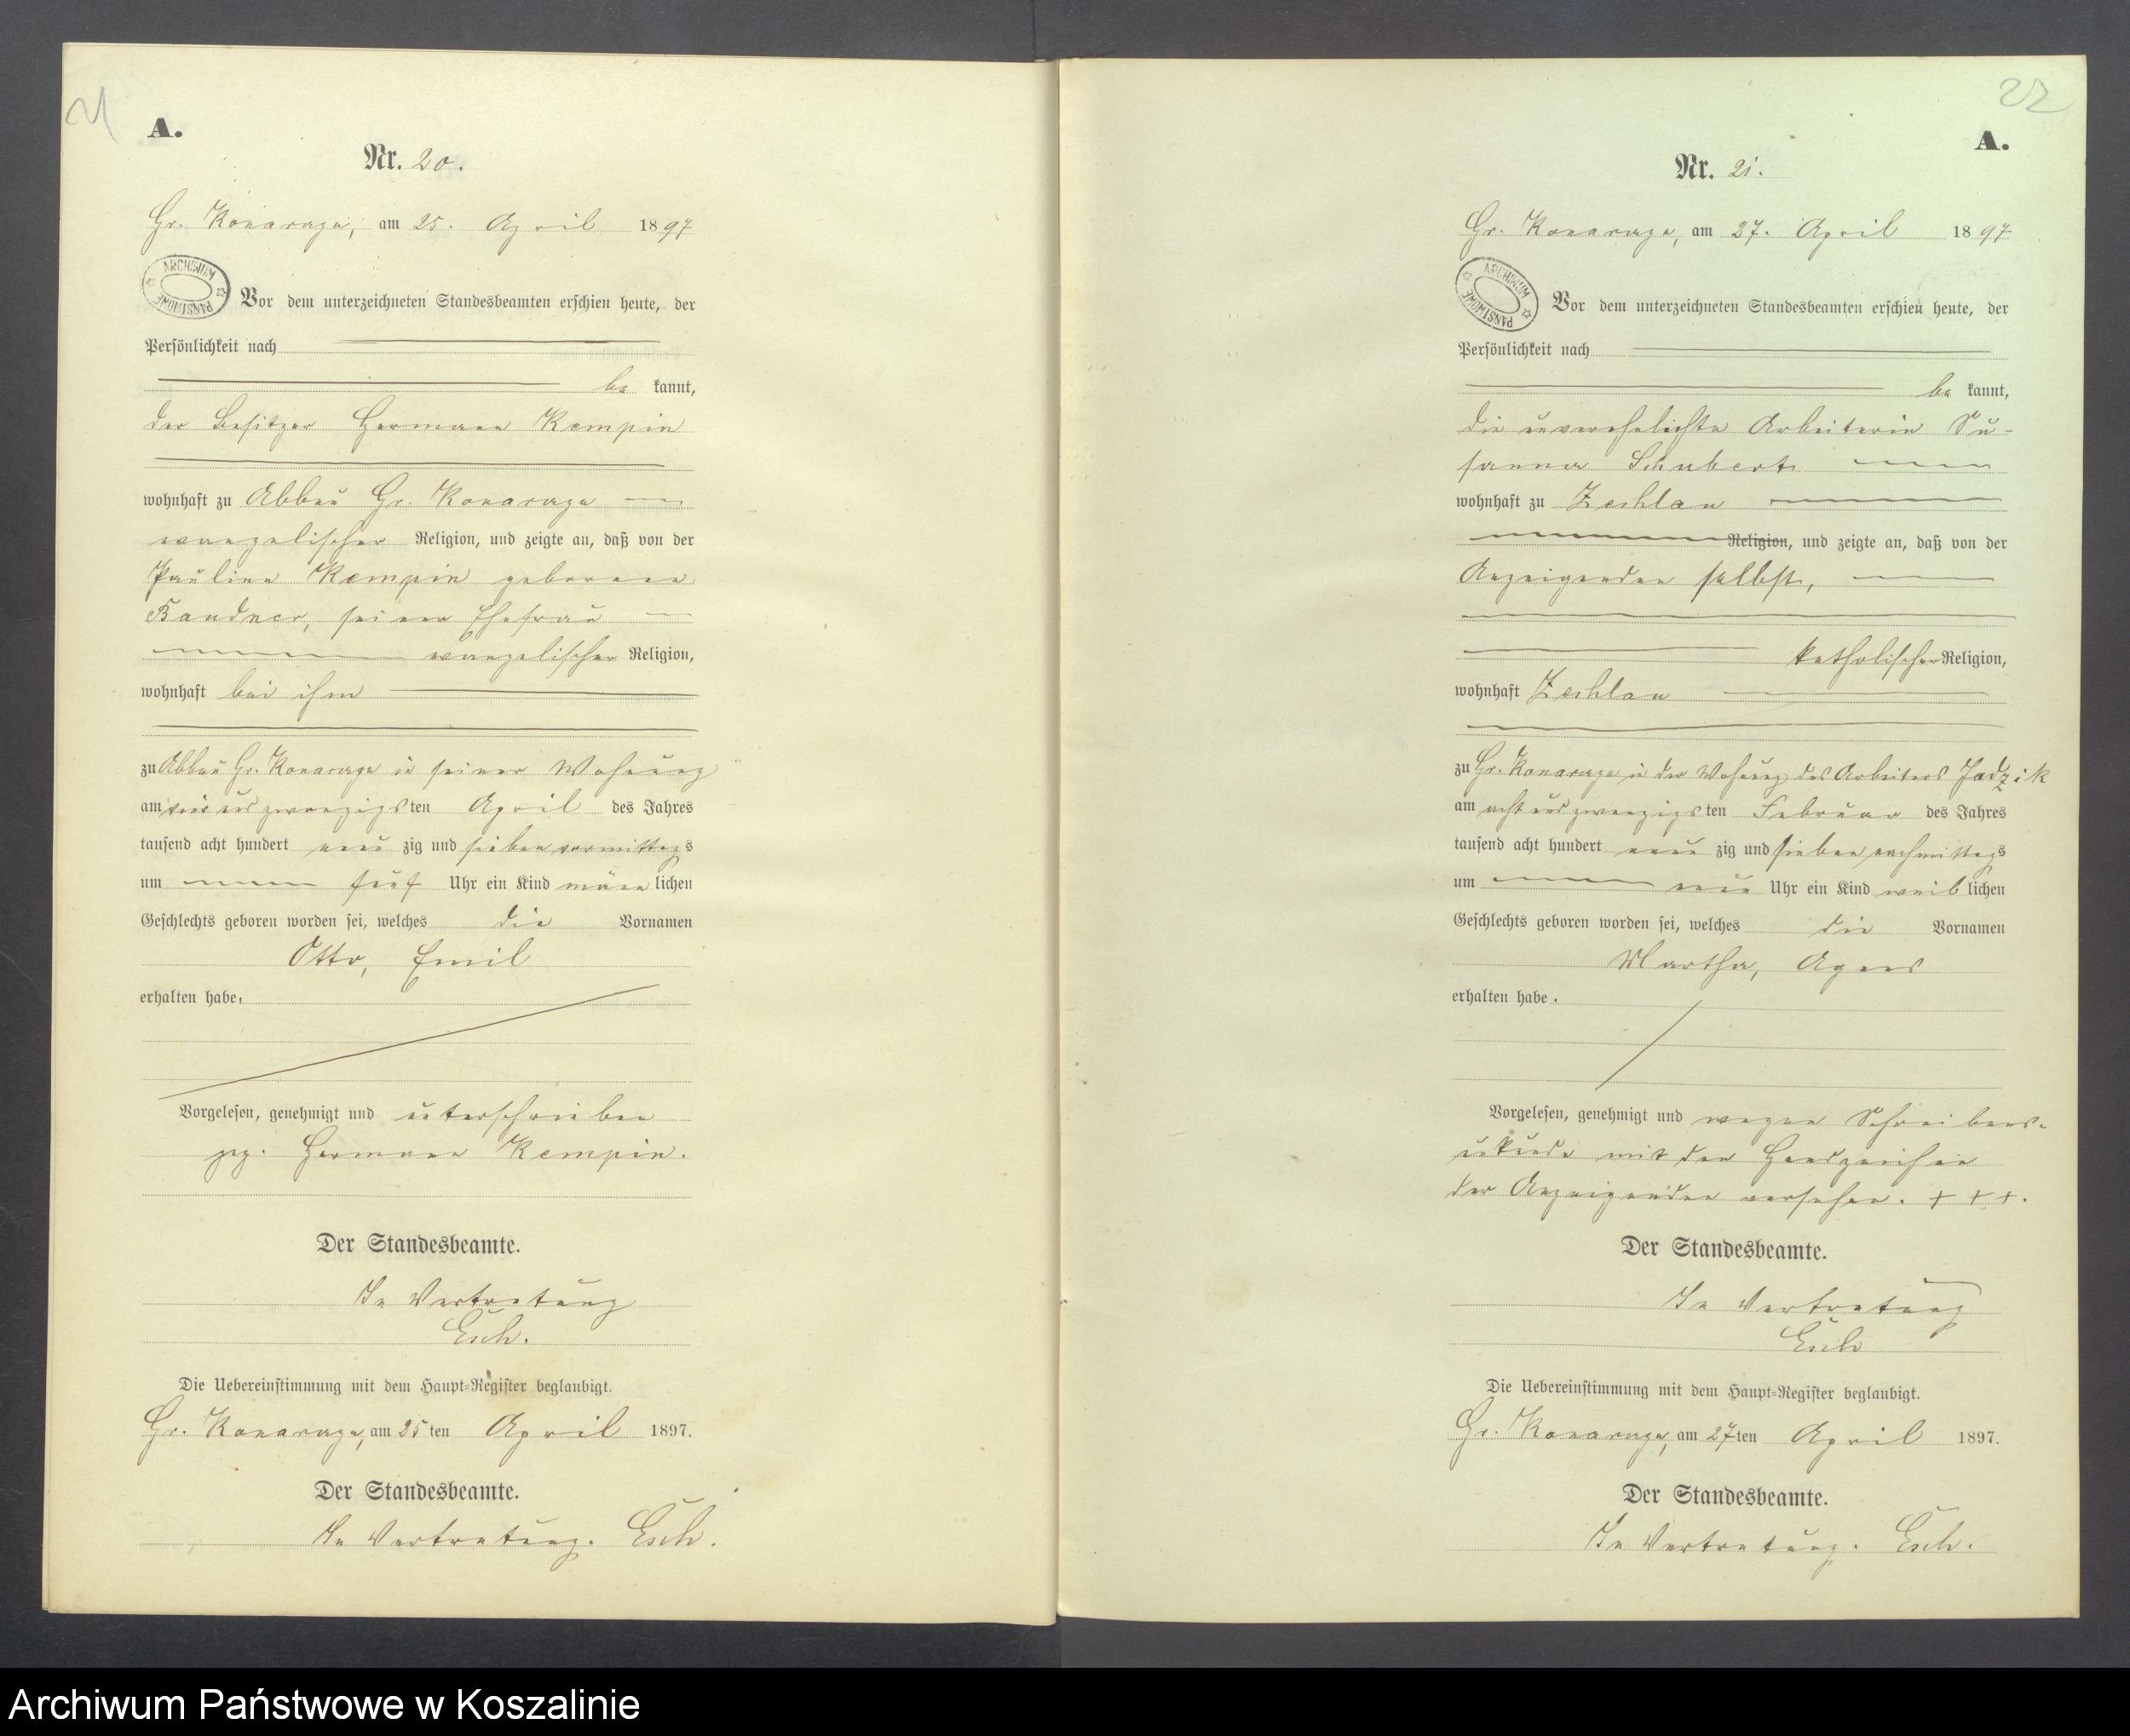 21
A.
Nr. 20.
Gr. Konarzyn, am 25. April 1897
ARCHIWUM PAŃSTWOWE
Vor dem unterzeichneten Standesbeamten erschien heute, der
Persönlichkeit nach
be kannt,
der Besitzer Hermann Kempin
wohnhaft zu Abbau Gr. Konarzyn
evangelischer Religion, und zeigte an, daß von der
Pauline Kempin geborenen
Bandner, seiner Ehefrau
evangelischer Religion,
wohnhaft bei ihm
zu Abbau Gr. Konarzyn in seiner Wohnung
am vier und zwanzigsten April des Jahres
tausend acht hundert neun zig und sieben vormittags
um fünf Uhr ein Kind männ lichen
Geschlechts geboren worden sei, welches die Vornamen
Otto, Emil
erhalten habe.
Vorgelesen, genehmigt und unterschrieben
gez. Hermann Kempin.
Der Standesbeamte.
In Vertretung
Esch.
Die Uebereinstimmung mit dem Haupt-Register beglaubigt.
Gr. Konarzyn, am 25 ten April 1897.
Der Standesbeamte.
In Vertretung. Esch.
22
A.
Nr. 21.
Gr. Konarzyn, am 27. April 1897
ARCHIWUM PAŃSTWOWE
Vor dem unterzeichneten Standesbeamten erschien heute, der
Persönlichkeit nach
be kannt,
die unverehelichte Arbeiterin Su-
sanna Schubert
wohnhaft zu Zechlau
Religion, und zeigte an, daß von der
Anzeigenden selbst,
katholischer Religion,
wohnhaft Zechlau
zu Gr. Konarzyn in der Wohnung des Arbeiters Jadzik
am acht und zwanzigsten Februar des Jahres
tausend acht hundert neun zig und sieben nachmittags
um neun Uhr ein Kind weib lichen
Geschlechts geboren worden sei, welches die Vornamen
Martha, Agnes
erhalten habe.
Vorgelesen, genehmigt und wegen Schreibens-
unkunde mit den Handzeichen
der Anzeigenden versehen. + + +.
Der Standesbeamte.
In Vertretung
Esch
Die Uebereinstimmung mit dem Haupt-Register beglaubigt.
Gr. Konarzyn, am 27 ten April 1897.
Der Standesbeamte.
In Vertretung. Esch.
Archiwum Państwowe w Koszalinie